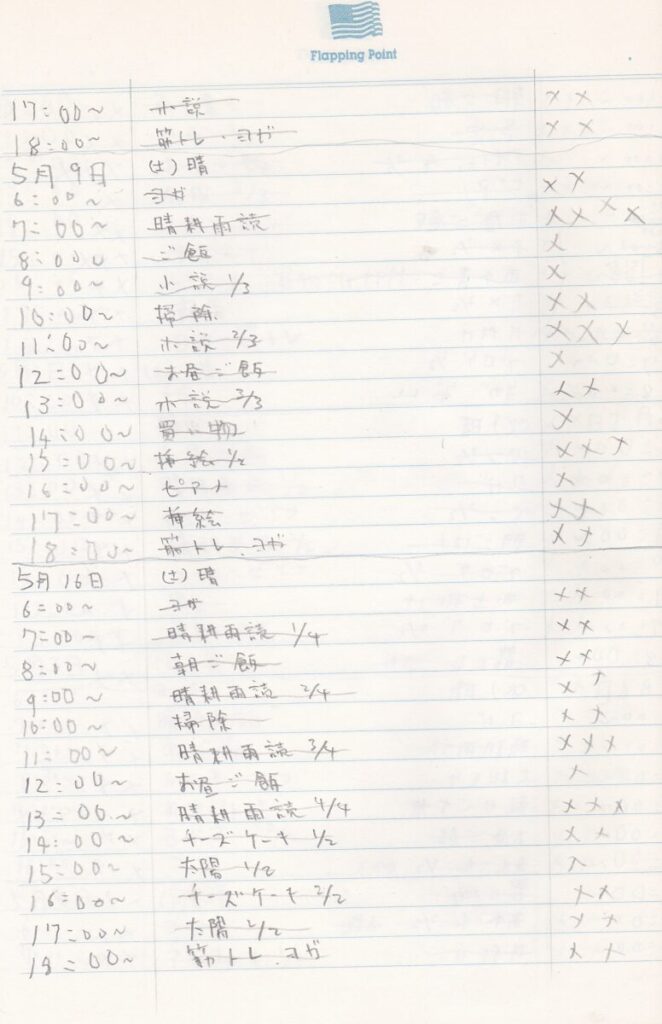 Flapping Point
17:00~ 小説 ××
18:00~ 筋トレ・ヨガ ××
5月9日 (土)晴
6:00~ ヨガ ××
7:00~ 晴耕雨読 ××××
8:00~ ご飯 ×
9:00~ 小説 1/3 ×
10:00~ 掃除 ××
11:00~ 小説 2/3 ×××
12:00~ お昼ご飯 ×
13:00~ 小説 3/3 ××
14:00~ 買い物 ×
15:00~ 挿絵 1/2 ×××
16:00~ ピアノ ×
17:00~ 挿絵 ××
18:00~ 筋トレ.ヨガ ××
5月16日 (土)晴
6:00~ ヨガ ××
7:00~ 晴耕雨読 1/4 ××
8:00~ 朝ご飯 ××
9:00~ 晴耕雨読 2/4 ××
10:00~ 掃除 ××
11:00~ 晴耕雨読 3/4 ×××
12:00~ お昼ご飯 ×
13:00~ 晴耕雨読 4/4 ×××
14:00~ チーズケーキ 1/2 ××
15:00~ 太陽 1/2 ×
16:00~ チーズケーキ 2/2 ××
17:00~ 太陽 2/2 ××
18:00~ 筋トレ.ヨガ ××